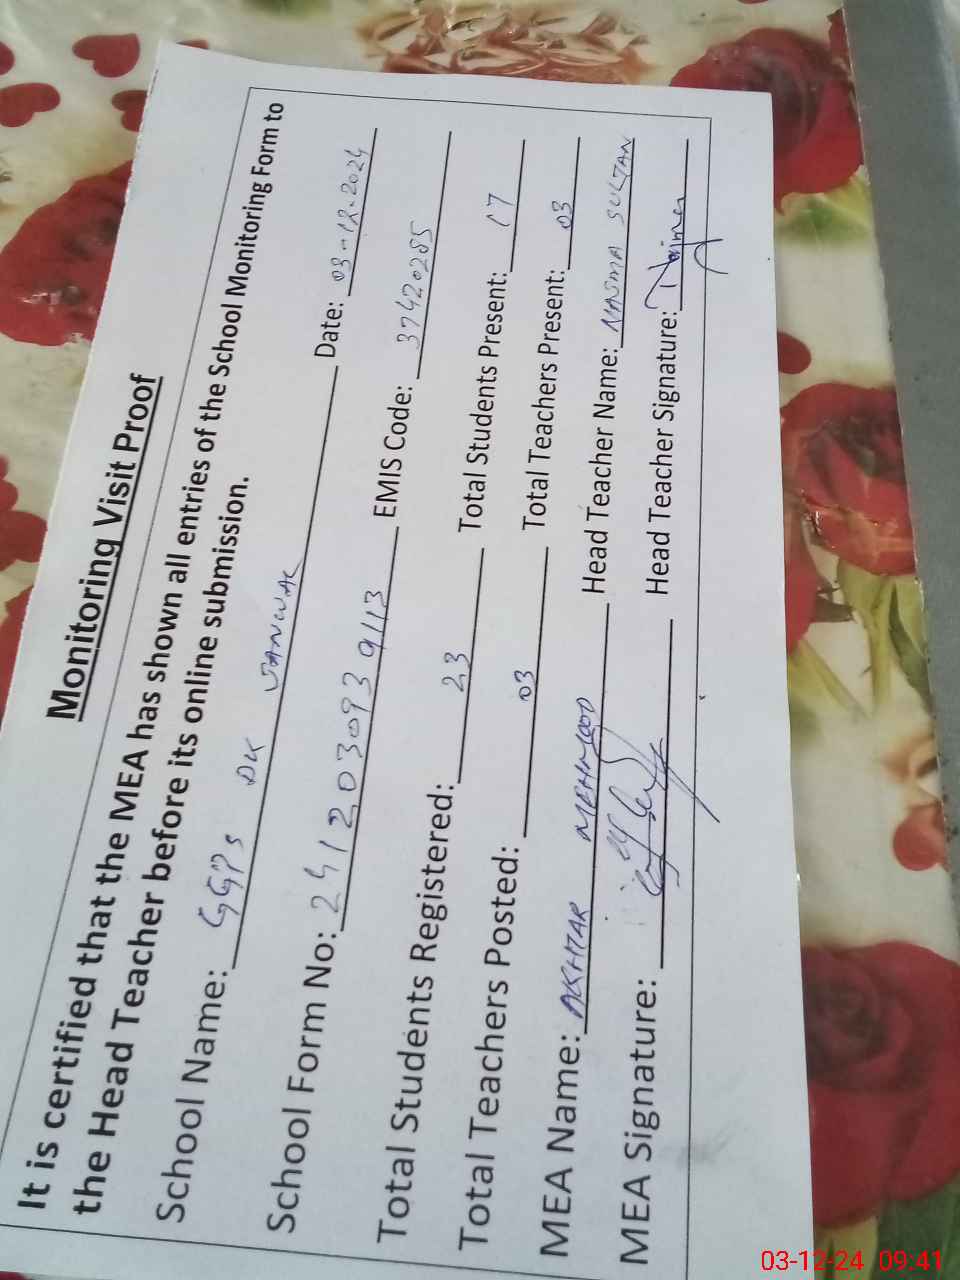 Monitoring Visit Proof
It is certified that the MEA has shown all entries of the School Monitoring Form to
the Head Teacher before its online submission.
School Name: GGPS DK JANWAK Date: 03-12-2024
School Form No: 2412030939113 EMIS Code: 37420285
Total Students Registered: 23 Total Students Present: 17
Total Teachers Posted: 03 Total Teachers Present: 03
MEA Name: AKHTAR MEHMOOD Head Teacher Name: NASMA SULTAN
MEA Signature: Head Teacher Signature:
03-12-24 09:41